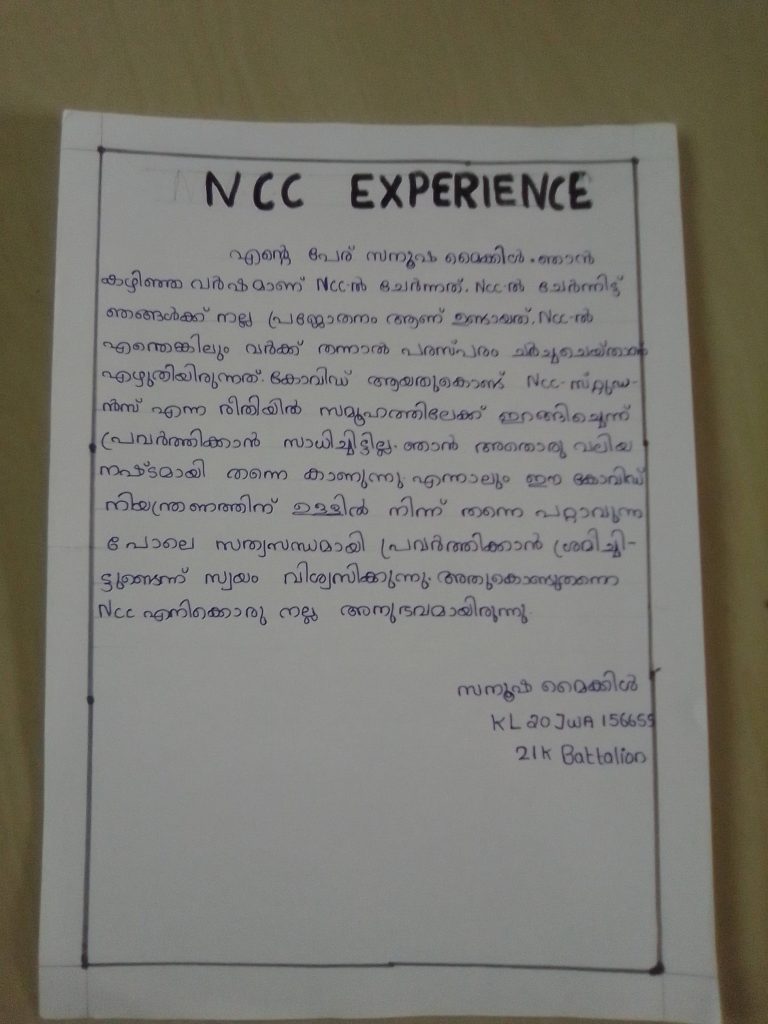 NCC EXPERIENCE
എന്റെ പേര് സനൂഷ മൈക്കിൾ. ഞാൻ
കഴിഞ്ഞ വർഷമാണ് NCC-ൽ ചേർന്നത്. NCC-ൽ ചേർന്നിട്ട്
ഞങ്ങൾക്ക് നല്ല പ്രജോതനം ആണ് ഉണ്ടായത്. NCC-ൽ
എന്തെങ്കിലും വർക്ക് തന്നാൽ പരസ്പരം ചർച്ചചെയ്താണ്
എഴുതിയിരുന്നത്. കോവിഡ് ആയതുകൊണ്ട് NCC-സ്റ്റുഡ-
ൻസ് എന്ന രീതിയിൽ സമൂഹത്തിലേക്ക് ഇറങ്ങിച്ചെന്ന്
പ്രവർത്തിക്കാൻ സാധിച്ചിട്ടില്ല. ഞാൻ അതൊരു വലിയ
നഷ്ടമായി തന്നെ കാണുന്നു. എന്നാലും ഈ കോവിഡ്
നിയന്ത്രണത്തിന് ഉള്ളിൽ നിന്ന് തന്നെ പറ്റാവുന്ന
പോലെ സത്യസന്ധമായി പ്രവർത്തിക്കാൻ ശ്രമിച്ചി-
ട്ടുണ്ടെന്ന് സ്വയം വിശ്വസിക്കുന്നു. അതുകൊണ്ടുതന്നെ
NCC എനിക്കൊരു നല്ല അനുഭവമായിരുന്നു.
സനൂഷ മൈക്കിൾ
KL20JWA156655
21K Battalion